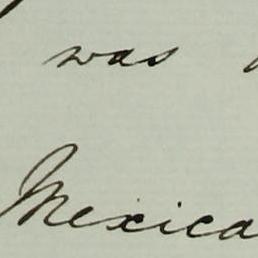 was
Mexica